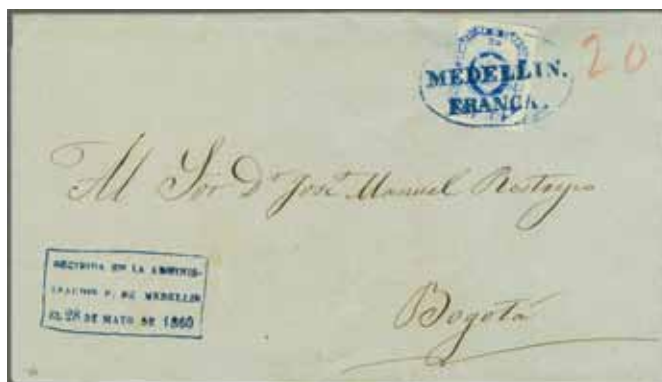 MEDELLIN.
FRANCA.
20
Al Sor Dr José Manuel Restrepo
Bogotá
RECIBIDA EN LA ADMINIS-
TRACION P. DE MEDELLIN
EL 28 DE MAYO DE 1860